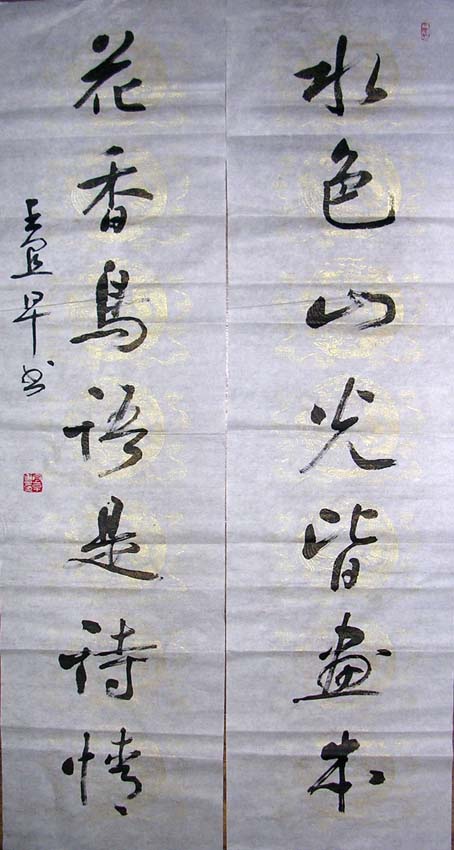 水色山光皆画本
花香鸟语是诗情
王宜早书